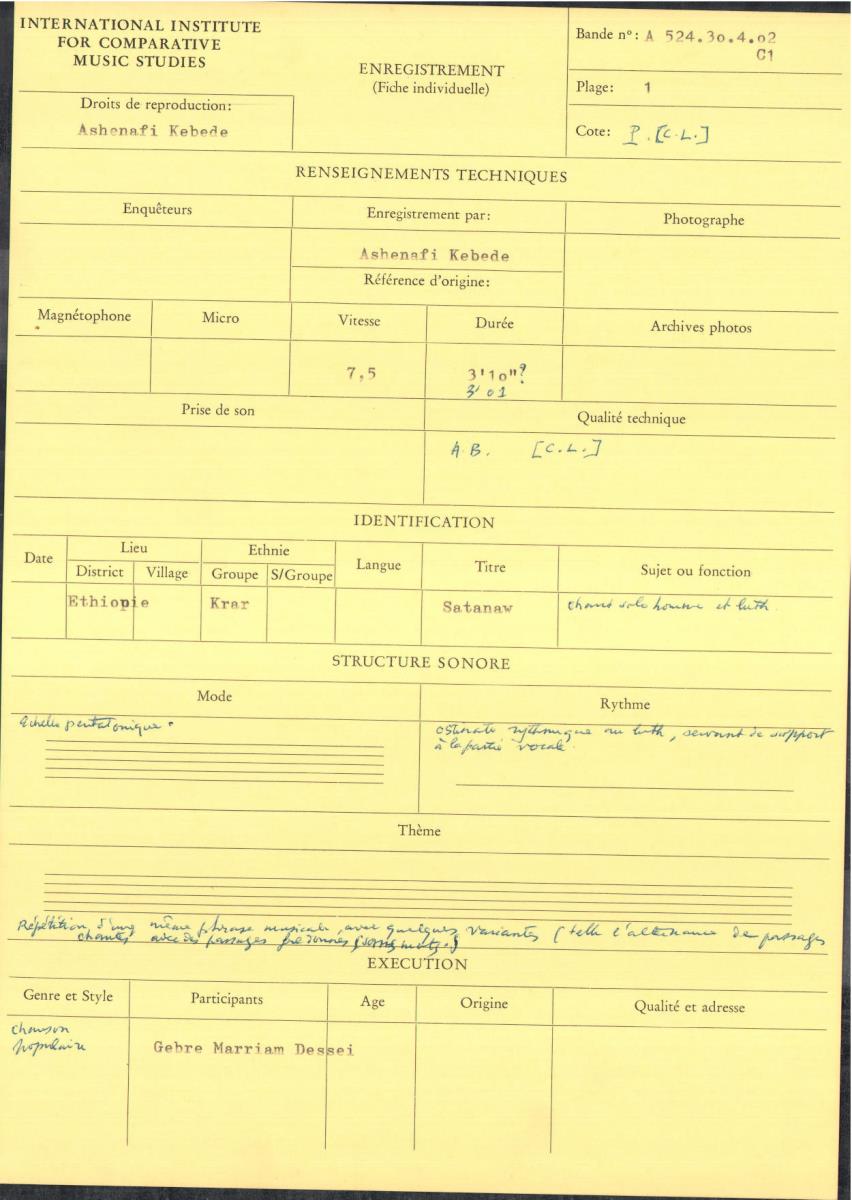 INTERNATIONAL INSTITUTE
FOR COMPARATIVE
MUSIC STUDIES
Droits de reproduction:
Ashenafi Kebede
ENREGISTREMENT
(Fiche individuelle)
Bande nº: A 524.3o.4.o2
C1
Plage: 1
Cote: P. [C.L.]
RENSEIGNEMENTS TECHNIQUES
Enquêteurs
Enregistrement par:
Photographe
Ashenafi Kebede
Référence d'origine:
Magnétophone
Micro
Vitesse
Durée
Archives photos
7,5
3'1o"?
3'01
Prise de son
Qualité technique
A.B. [C.L.]
IDENTIFICATION
Date
Lieu
Ethnie
Langue
Titre
Sujet ou fonction
District
Village
Groupe
S/Groupe
Ethiopie
Krar
Satanaw
chant solo homme et luth.
STRUCTURE SONORE
Mode
Rythme
échelle pentatonique.
ostinato rythmique au luth, servant de support
à la partie vocale.
Thème
Répétition d'une même phrase musicale, avec quelques variantes (telle l'alternance de passages
chantés avec des passages fredonnés (sans mots).)
EXECUTION
Genre et Style
Participants
Age
Origine
Qualité et adresse
chanson
populaire
Gebre Marriam Dessei